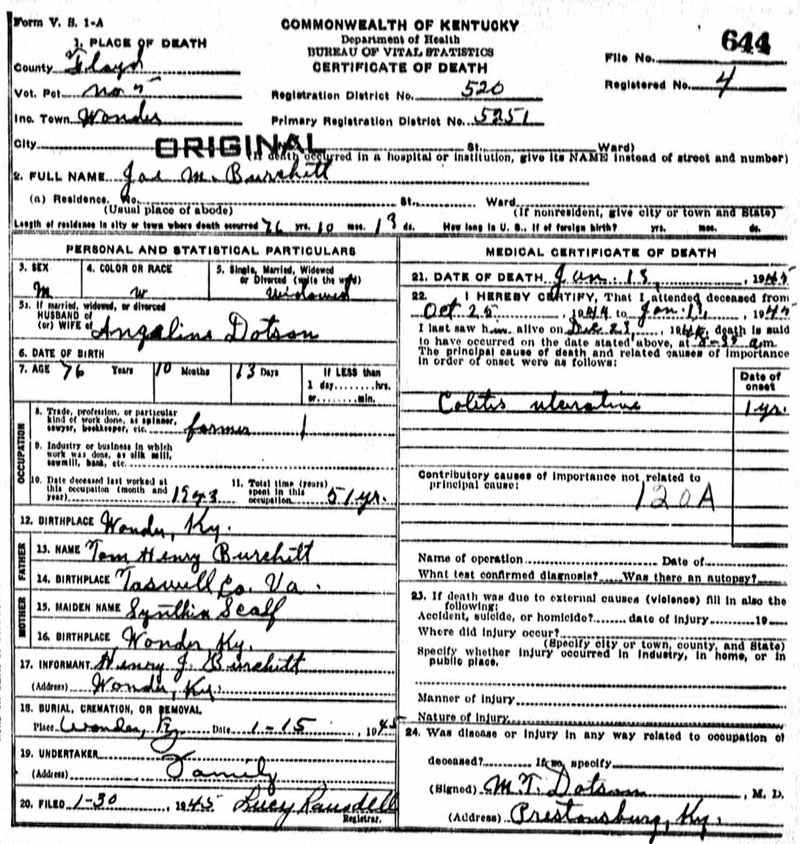 Form V. S. 1-A
COMMONWEALTH OF KENTUCKY
Department of Health
BUREAU OF VITAL STATISTICS
CERTIFICATE OF DEATH
644
File No.
Registered No. 4
1. PLACE OF DEATH
County Floyd
Vot. Pct. No 5
Inc. Town Wonder
City
Registration District No. 520
Primary Registration District No. 5251
ORIGINAL
St. Ward)
(If death occurred in a hospital or institution, give its NAME instead of street and number)
2. FULL NAME Jas M. Burchett
(a) Residence. No. St., Ward
(Usual place of abode) (If nonresident, give city or town and State)
Length of residence in city or town where death occurred 76 yrs. 10 mos. 13 ds. How long in U. S., if of foreign birth? yrs. mos. ds.
PERSONAL AND STATISTICAL PARTICULARS
3. SEX
M
4. COLOR OR RACE
W
5. Single, Married, Widowed
or Divorced (write the word)
Widowed
5a. If married, widowed, or divorced
HUSBAND of
(or) WIFE of Angeline Dotson
6. DATE OF BIRTH
7. AGE 76 Years 10 Months 13 Days If LESS than
1 day hrs.
or min.
OCCUPATION
8. Trade, profession, or particular
kind of work done, as spinner,
sawyer, bookkeeper, etc. farmer
9. Industry or business in which
work was done, as silk mill,
sawmill, bank, etc.
10. Date deceased last worked at
this occupation (month and
year) 1943
11. Total time (years)
spent in this
occupation 51 yr.
12. BIRTHPLACE Wonder, Ky.
FATHER
13. NAME Tom Henry Burchett
14. BIRTHPLACE Taswell Co. Va.
MOTHER
15. MAIDEN NAME Synthia Scalf
16. BIRTHPLACE Wonder, Ky.
17. INFORMANT Henry J. Burchett
(Address) Wonder, Ky.
18. BURIAL, CREMATION, OR REMOVAL
Place Wonder, Ky Date 1-15 1945
19. UNDERTAKER
(Address) Family
20. FILED 1-30 1945 Lucy Ransdell
Registrar.
MEDICAL CERTIFICATE OF DEATH
21. DATE OF DEATH Jan. 13, 1945
22. I HEREBY CERTIFY, That I attended deceased from
Oct 25, 1944 to Jan. 1945
I last saw him alive on Dec 23, 1944, death is said
to have occurred on the date stated above, at a.m.
The principal cause of death and related causes of importance
in order of onset were as follows:
Date of
onset
Colitis ulcerative 1 yr.
Contributory causes of importance not related to
principal cause:
120A
Name of operation Date of
What test confirmed diagnosis? Was there an autopsy?
23. If death was due to external causes (violence) fill in also the
following:
Accident, suicide, or homicide? date of injury 19
Where did injury occur?
(Specify city or town, county, and State)
Specify whether injury occurred in industry, in home, or in
public place.
Manner of injury
Nature of injury
24. Was disease or injury in any way related to occupation of
deceased? If so, specify
(Signed) M. T. Dotson, M. D.
(Address) Prestonsburg, Ky.